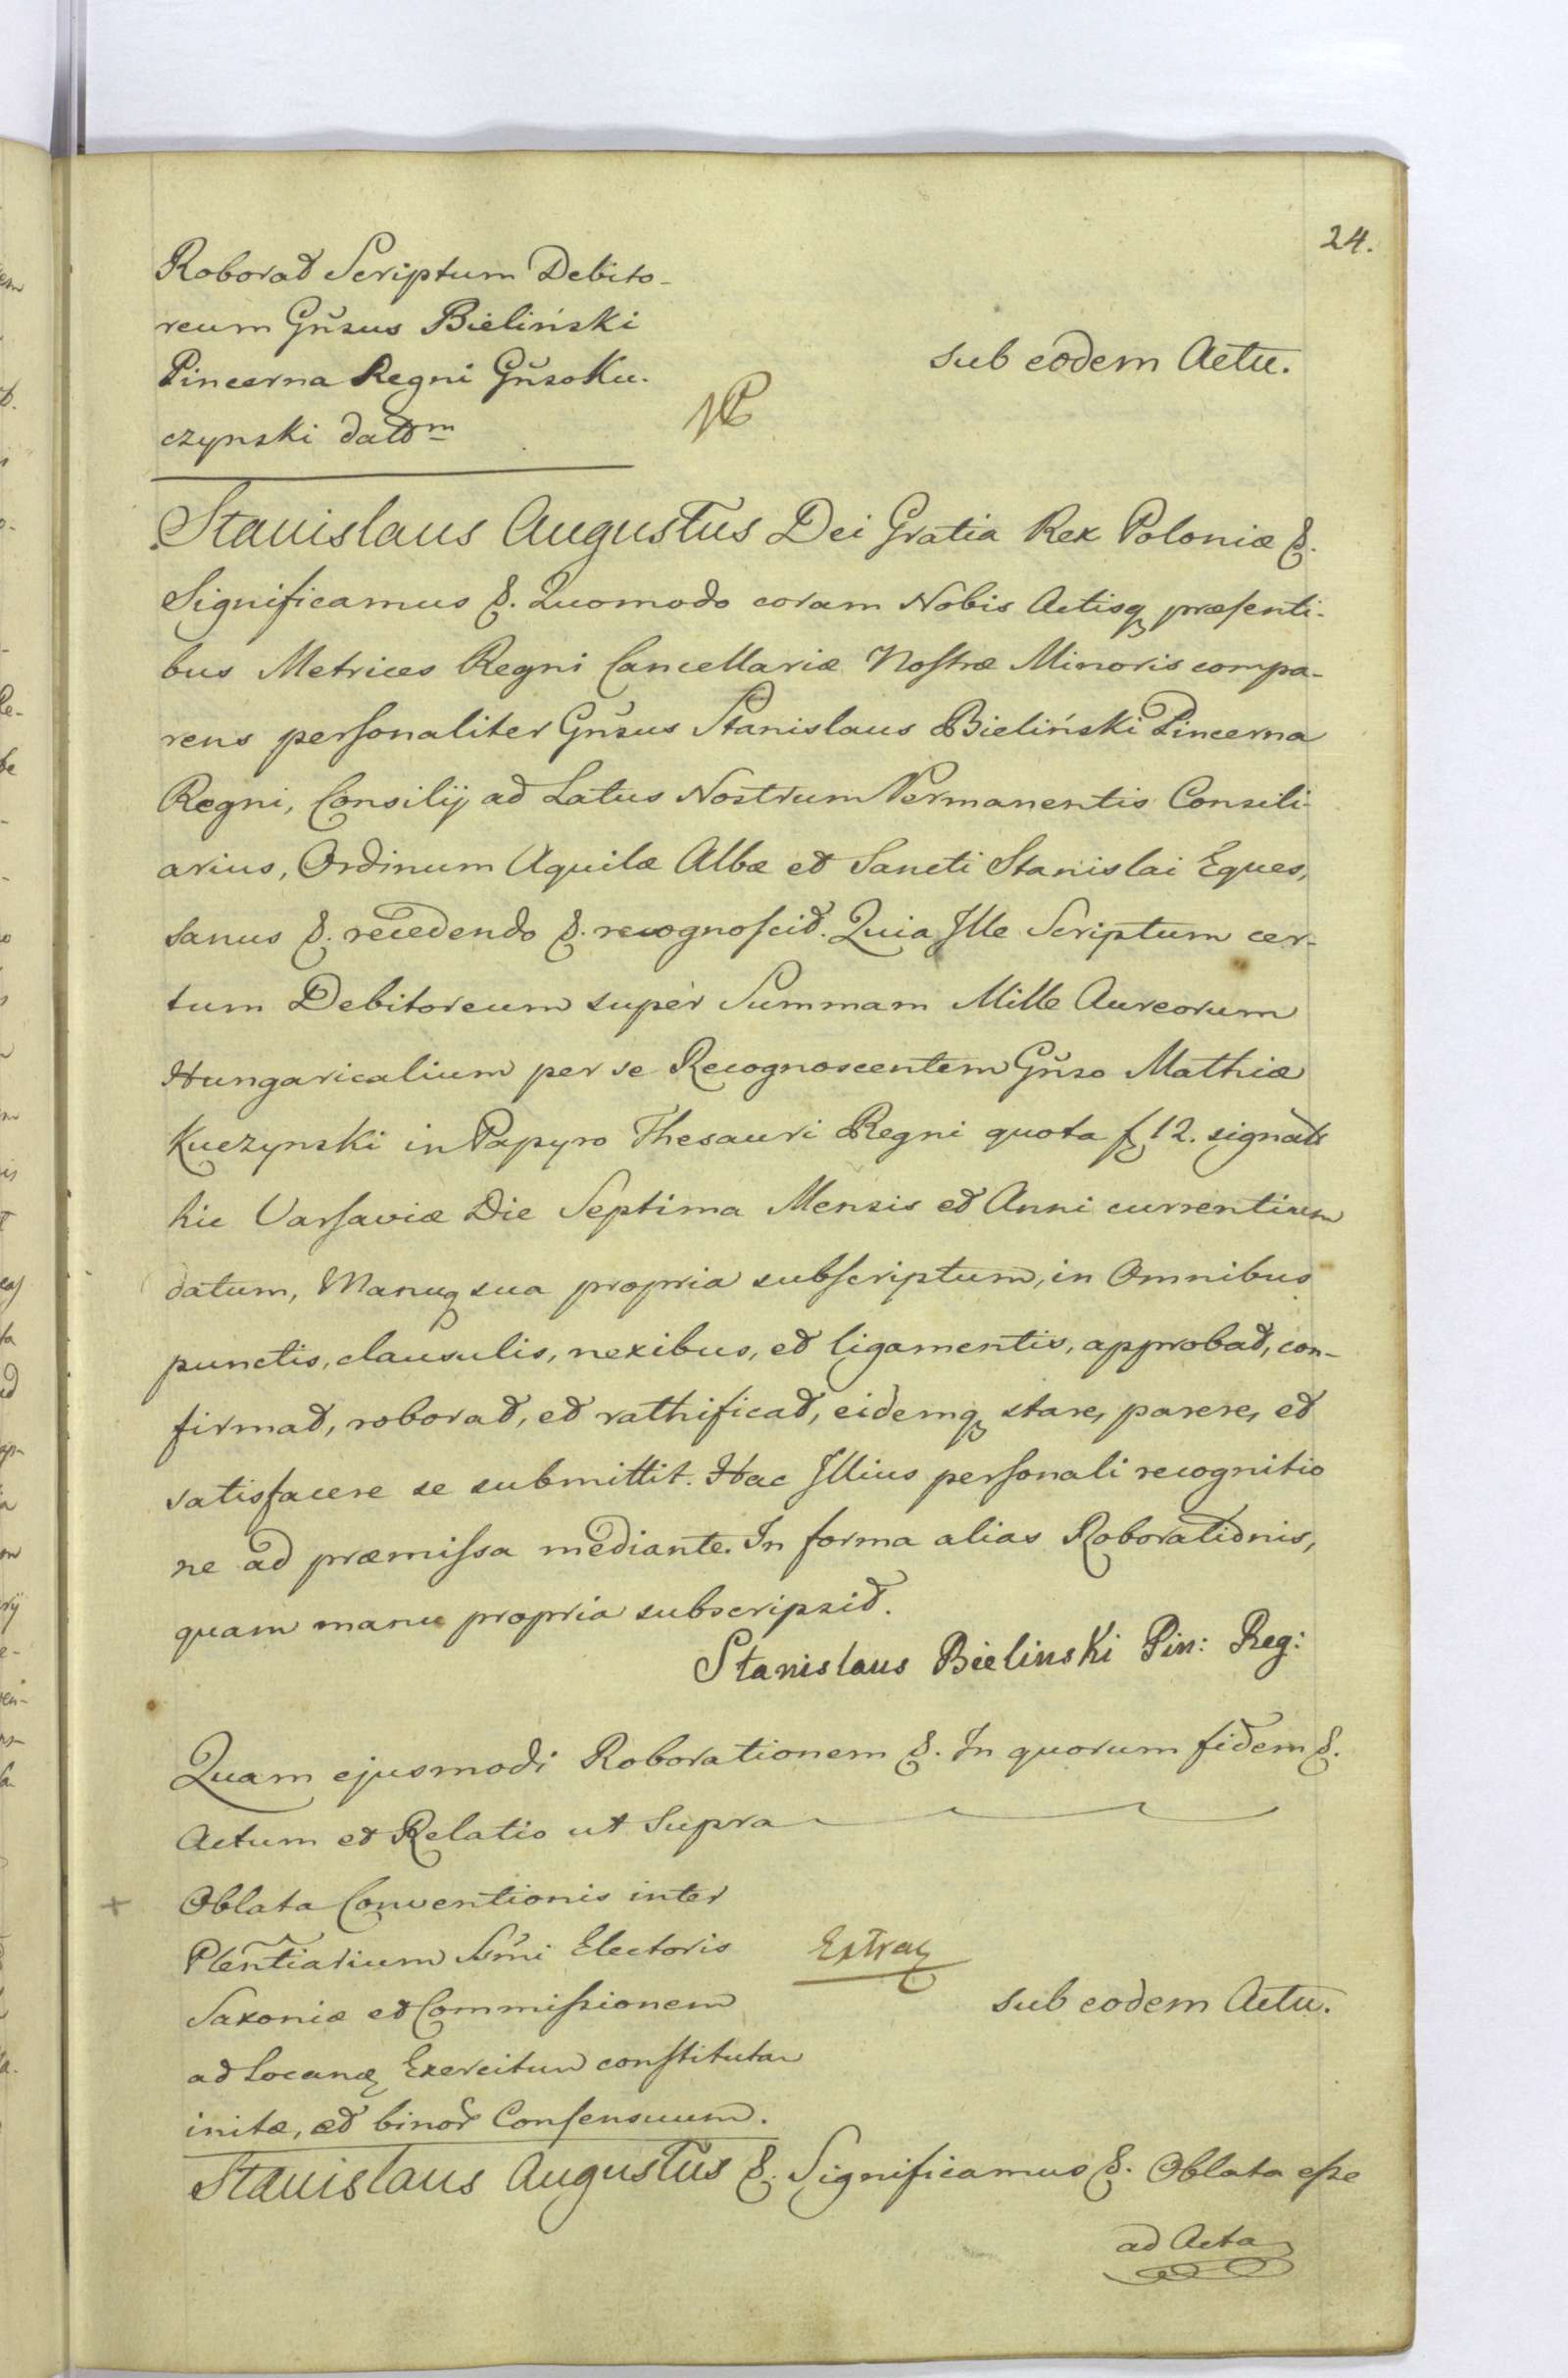 24.
Roborat Scriptum Debito-
reum Gn̄sus Bieliński
Pincerna Regni Gn̄so Ku-
czynski dat̄m
sub eodem Actu.
NP
Stanislaus Augustus Dei Gratia Rex Poloniæ &.
Significamus &. Quomodo coram Nobis Actisq præsenti-
bus Metrices Regni Cancellariæ Nostræ Minoris compa-
rens personaliter Gn̄sus Stanislaus Bieliński Pincerna
Regni, Consilij ad Latus Nostrum Permanentis Consili-
arius, Ordinum Aquilæ Albæ et Sancti Stanislai Eques,
sanus &. recedendo &. recognoscit. Quia Ille Scriptum cer-
tum Debitoreum super Summam Mille Aureorum
Hungaricalium per se Recognoscentem Gn̄so Mathiæ
Kuczynski in Papyro Thesauri Regni quota f 12. signat
hic Varsaviæ Die Septima Mensis et Anni currentium
datum, Manuq sua propria subscriptum, in Omnibus
punctis, clausulis, nexibus, et ligamentis, approbat, con-
firmat, roborat, et rathificat, eidemq stare, parere, et
satisfacere se submittit. Hac Illius personali recognitio
ne ad præmissa mediante. In forma alias Roborationis,
quam manu propria subscripsit.
Stanislaus Bielinski Pin: Reg:
Quam ejusmodi Roborationem &. In quorum fidem &.
Actum et Relatio ut Supra
+ Oblata Conventionis inter
Plentiarium Smi Electoris
Saxoniæ et Commissionem
ad Locanq Exercitum constitutam
initæ, et binor Consensuum.
Extrag
sub eodem Actu.
Stanislaus Augustus &. Significamus &. Oblata esse
ad Acta